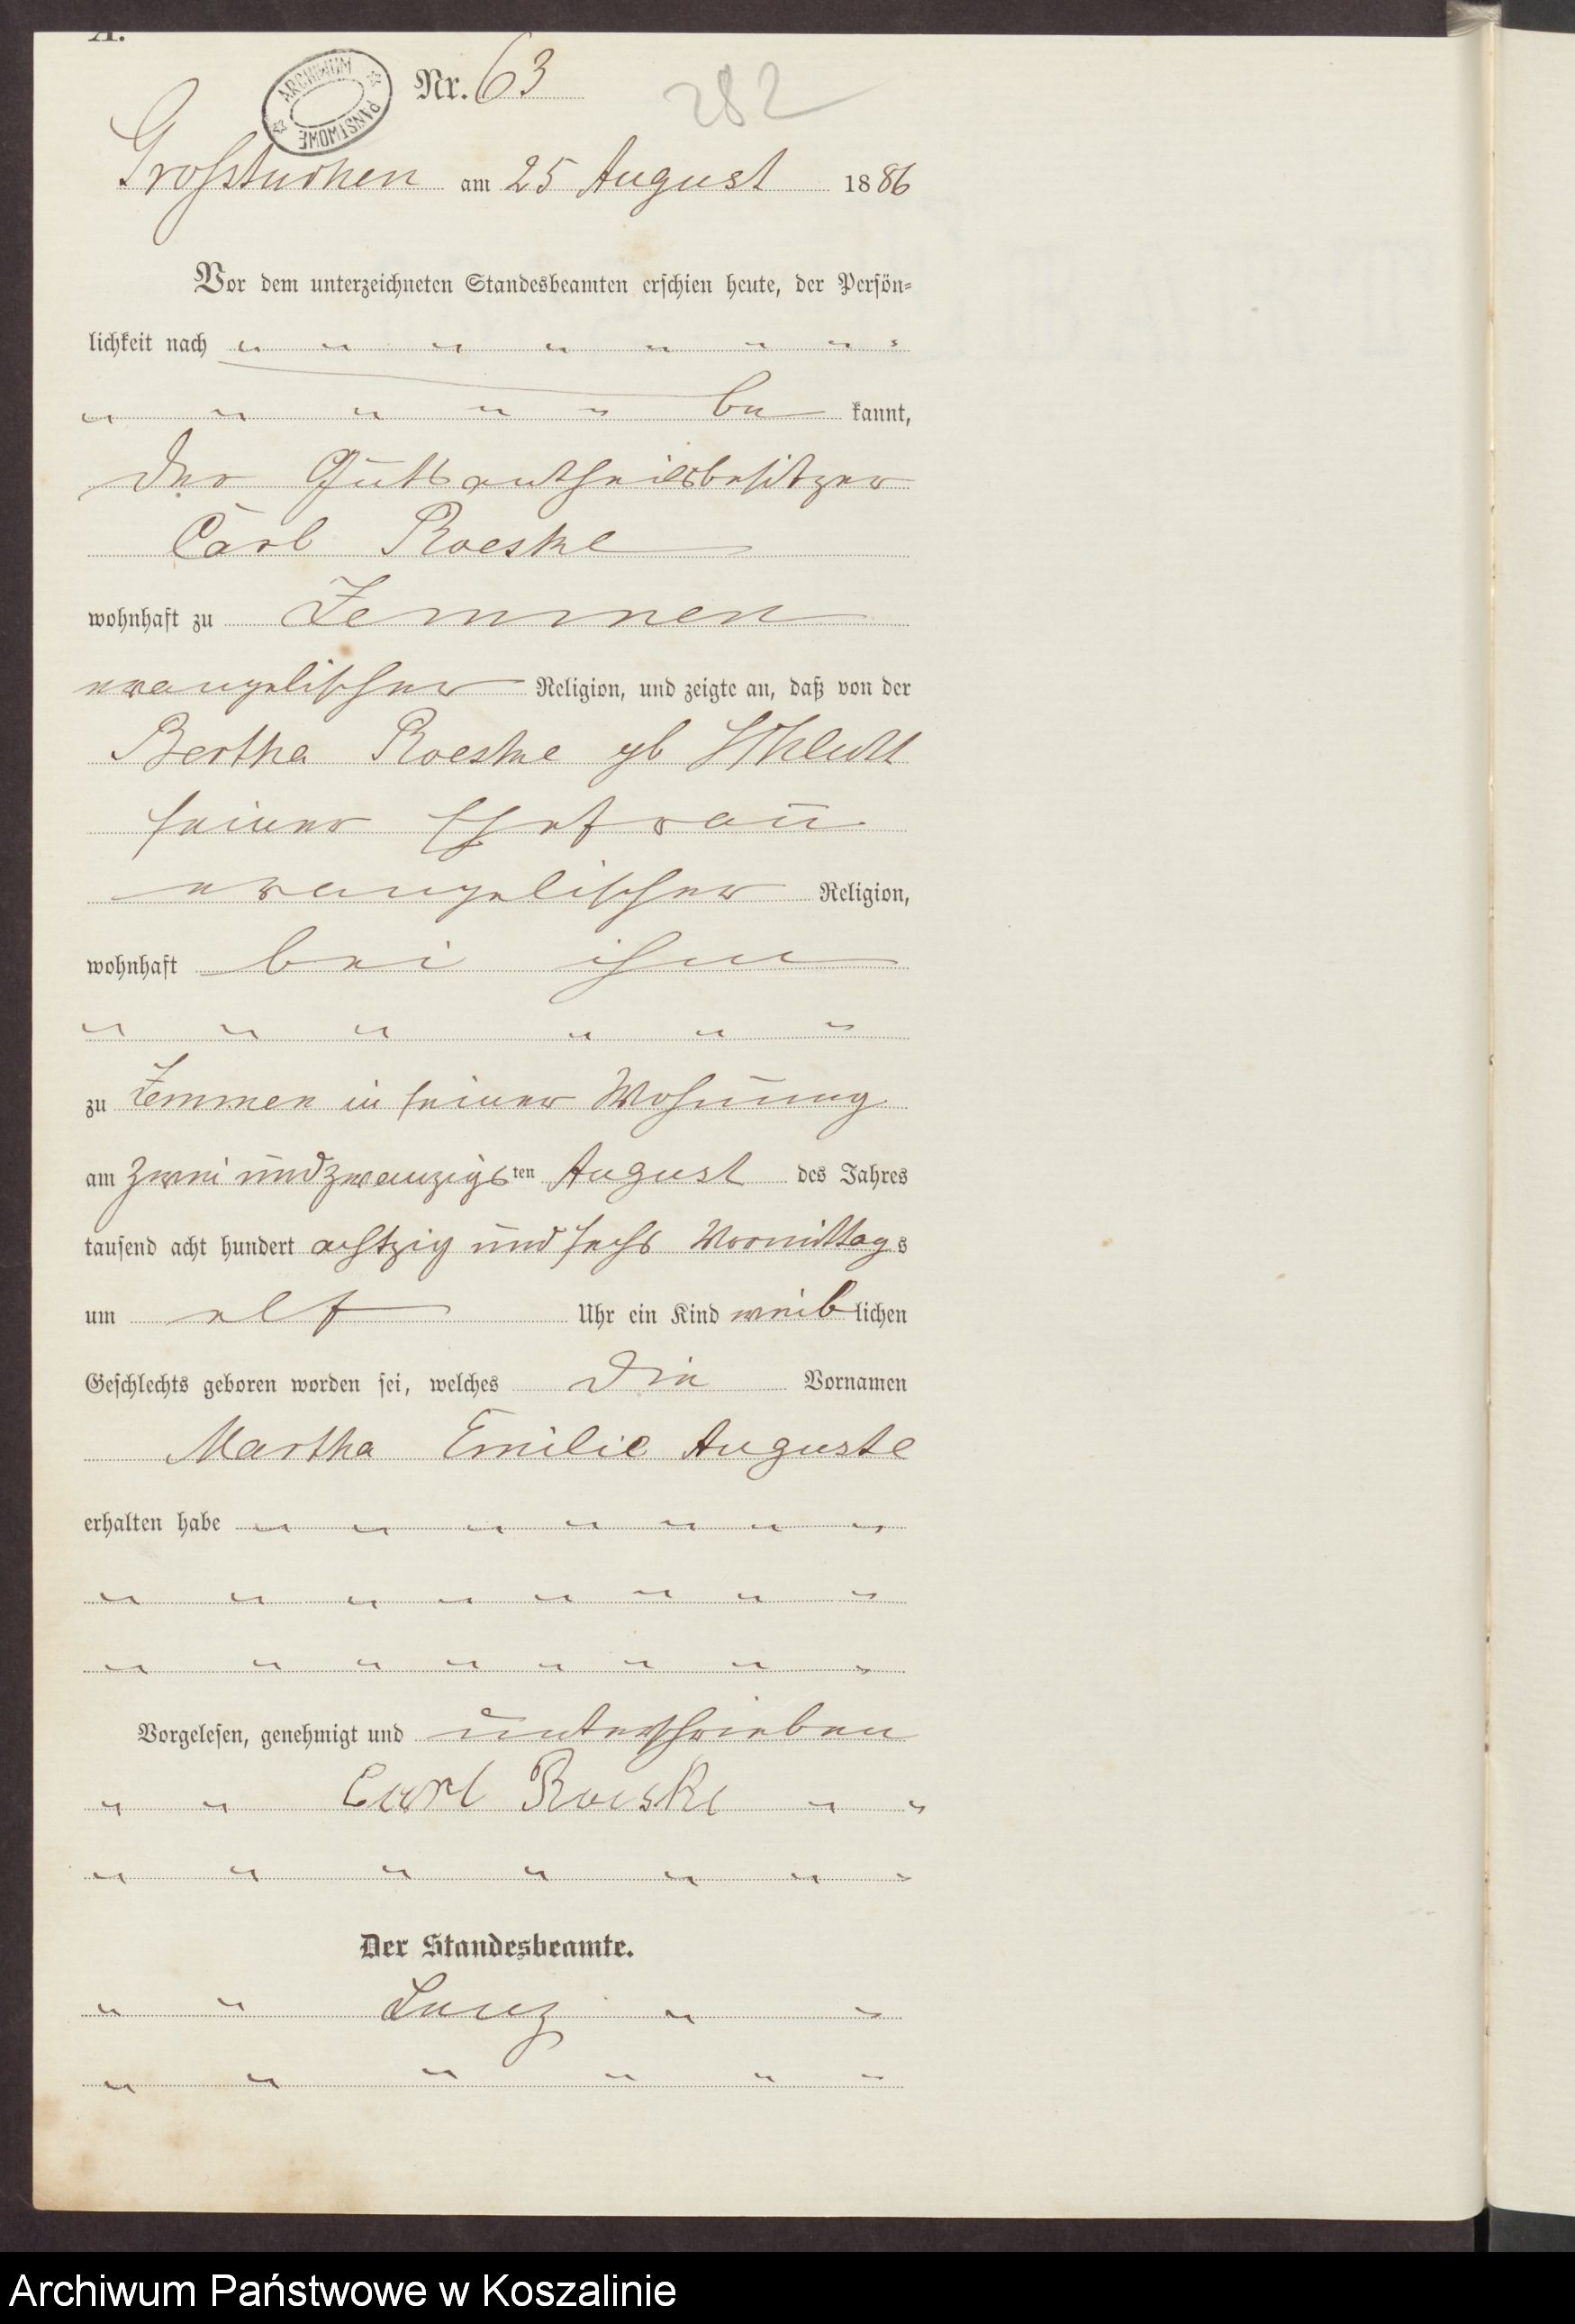 A.
ARCHIWUM PAŃSTWOWE
Nr. 63
282
Grosstuchen am 25 August 1886
Vor dem unterzeichneten Standesbeamten erschien heute, der Persön-
lichkeit nach " " " " " " " "
" " " " " be kannt,
der Gutsantheilsbesitzer
Carl Roeske
wohnhaft zu Zemmen
evangelischer Religion, und zeigte an, daß von der
Bertha Roeske gb
seiner Ehefrau
evangelischer Religion,
wohnhaft bei ihm
" " " " " "
zu Zemmen in seiner Wohnung
am zwei und zwanzigsten August des Jahres
tausend acht hundert achtzig und sechs Vormittags
um elf Uhr ein Kind weiblichen
Geschlechts geboren worden sei, welches die Vornamen
Martha Emilie Auguste
erhalten habe " " " " " " "
" " " " " " " "
" " " " " " " "
Vorgelesen, genehmigt und unterschrieben
" " Carl Roeske " "
" " " " " " "
Der Standesbeamte.
" " Lenz " "
" " " " " "
Archiwum Państwowe w Koszalinie